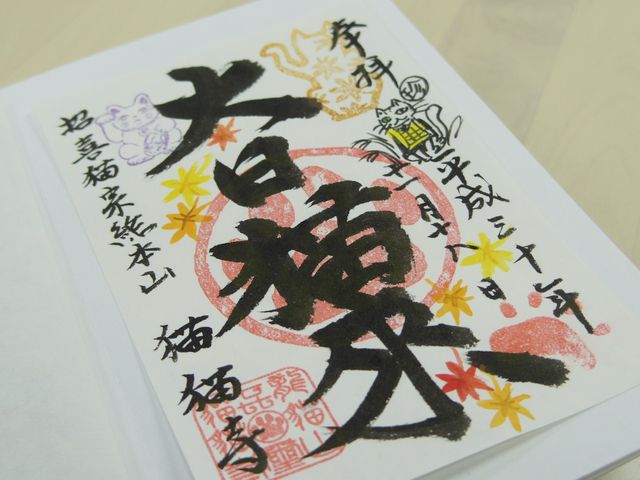 奉拝
平成三十年
十一月十八日
大日猫来
招喜猫宗総本山
猫猫寺